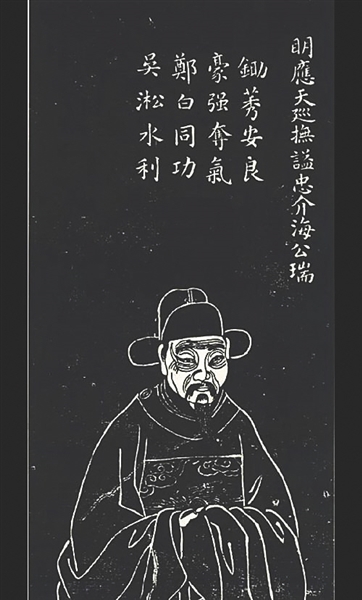 明應天廵撫諡忠介海公瑞
鋤莠安良
豪强奪氣
鄭白同功
吳淞水利